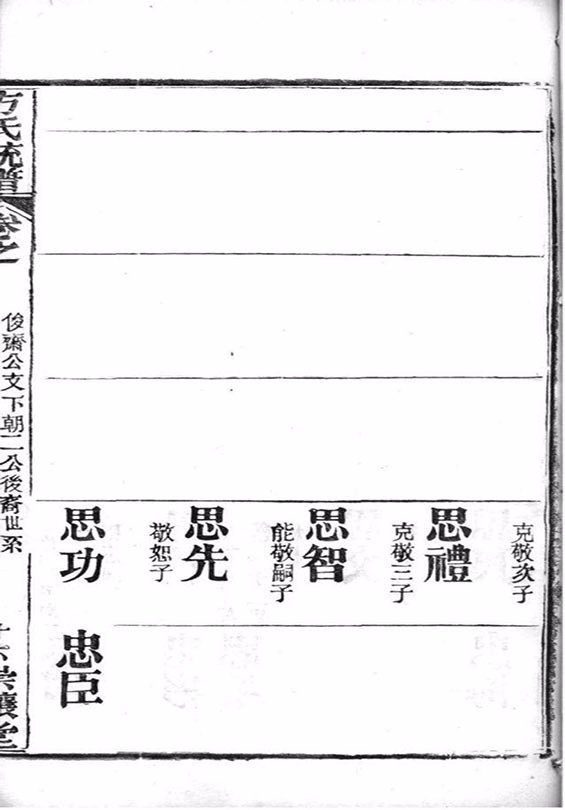 克敬次子
思禮
克敬三子
思智
能敬嗣子
思先
敬恕子
思功
忠臣
方氏統譜
卷之一
俊齋公支下朝二公後裔世系